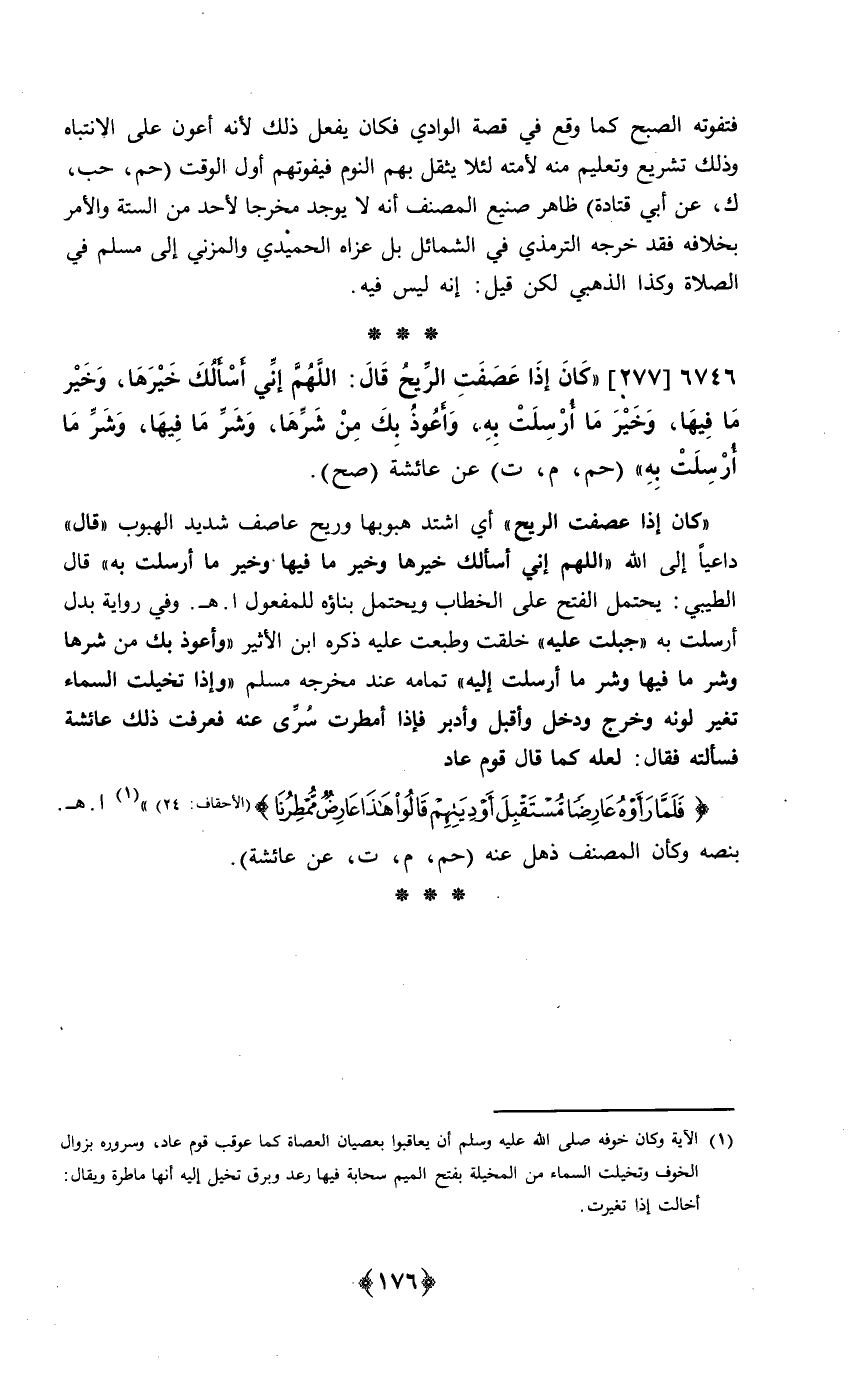 فتفوته الصبح كما وقع في قصة الوادي فكان يفعل ذلك لأنه أعون على الانتباه
وذلك تشريع وتعليم منه لأمته لئلا يثقل بهم النوم فيفوتهم أول الوقت (حم، حب،
ك، عن أبي قتادة) ظاهر صنيع المصنف أنه لا يوجد مخرجا لأحد من الستة والأمر
بخلافه فقد خرجه الترمذي في الشمائل بل عزاه الحميْدي والمزني إلى مسلم في
الصلاة وكذا الذهبي لكن قيل: إنه ليس فيه.
* * *
٦٧٤٦ [٢٧٧] «كَانَ إِذَا عَصَفَتِ الرِّيحُ قَالَ: اللَّهُمَّ إِنِّي أَسْأَلُكَ خَيْرَهَا، وَخَيْر
مَا فِيهَا، وَخَيْرَ مَا أُرْسِلَتْ بِهِ، وَأَعُوذُ بِكَ مِنْ شَرِّهَا، وَشَرِّ مَا فِيهَا، وَشَرِّ مَا
أُرْسِلَتْ بِهِ» (حم، م، ت) عن عائشة (صح).
«كان إذا عصفت الريح» أي اشتد هبوبها وريح عاصف شديد الهبوب «قال»
داعياً إلى الله «اللهم إني أسألك خيرها وخير ما فيها وخير ما أرسلت به» قال
الطيبي: يحتمل الفتح على الخطاب ويحتمل بناؤه للمفعول ا. هـ. وفي رواية بدل
أرسلت به «جبلت عليه» خلقت وطبعت عليه ذكره ابن الأثير «وأعوذ بك من شرها
وشر ما فيها وشر ما أرسلت إليه» تمامه عند مخرجه مسلم «وإذا تخيلت السماء
تغير لونه وخرج ودخل وأقبل وأدبر فإذا أمطرت سُرِّى عنه فعرفت ذلك عائشة
فسألته فقال: لعله كما قال قوم عاد
﴿ فَلَمَّا رَأَوْهُ عَارِضًا مُّسْتَقْبِلَ أَوْدِيَتِهِمْ قَالُوا۟ هَٰذَا عَارِضٌ مُّمْطِرُنَا ﴾ (الأحقاف: ٢٤) »(١) ا. هـ.
بنصه وكأن المصنف ذهل عنه (حم، م، ت، عن عائشة).
* * *
(١) الآية وكان خوفه صلى الله عليه وسلم أن يعاقبوا بعصيان العصاة كما عوقب قوم عاد، وسروره بزوال
الخوف وتخيلت السماء من المخيلة بفتح الميم سحابة فيها رعد وبرق تخيل إليه أنها ماطرة ويقال:
أخالت إذا تغيرت.
﴿١٧٦﴾